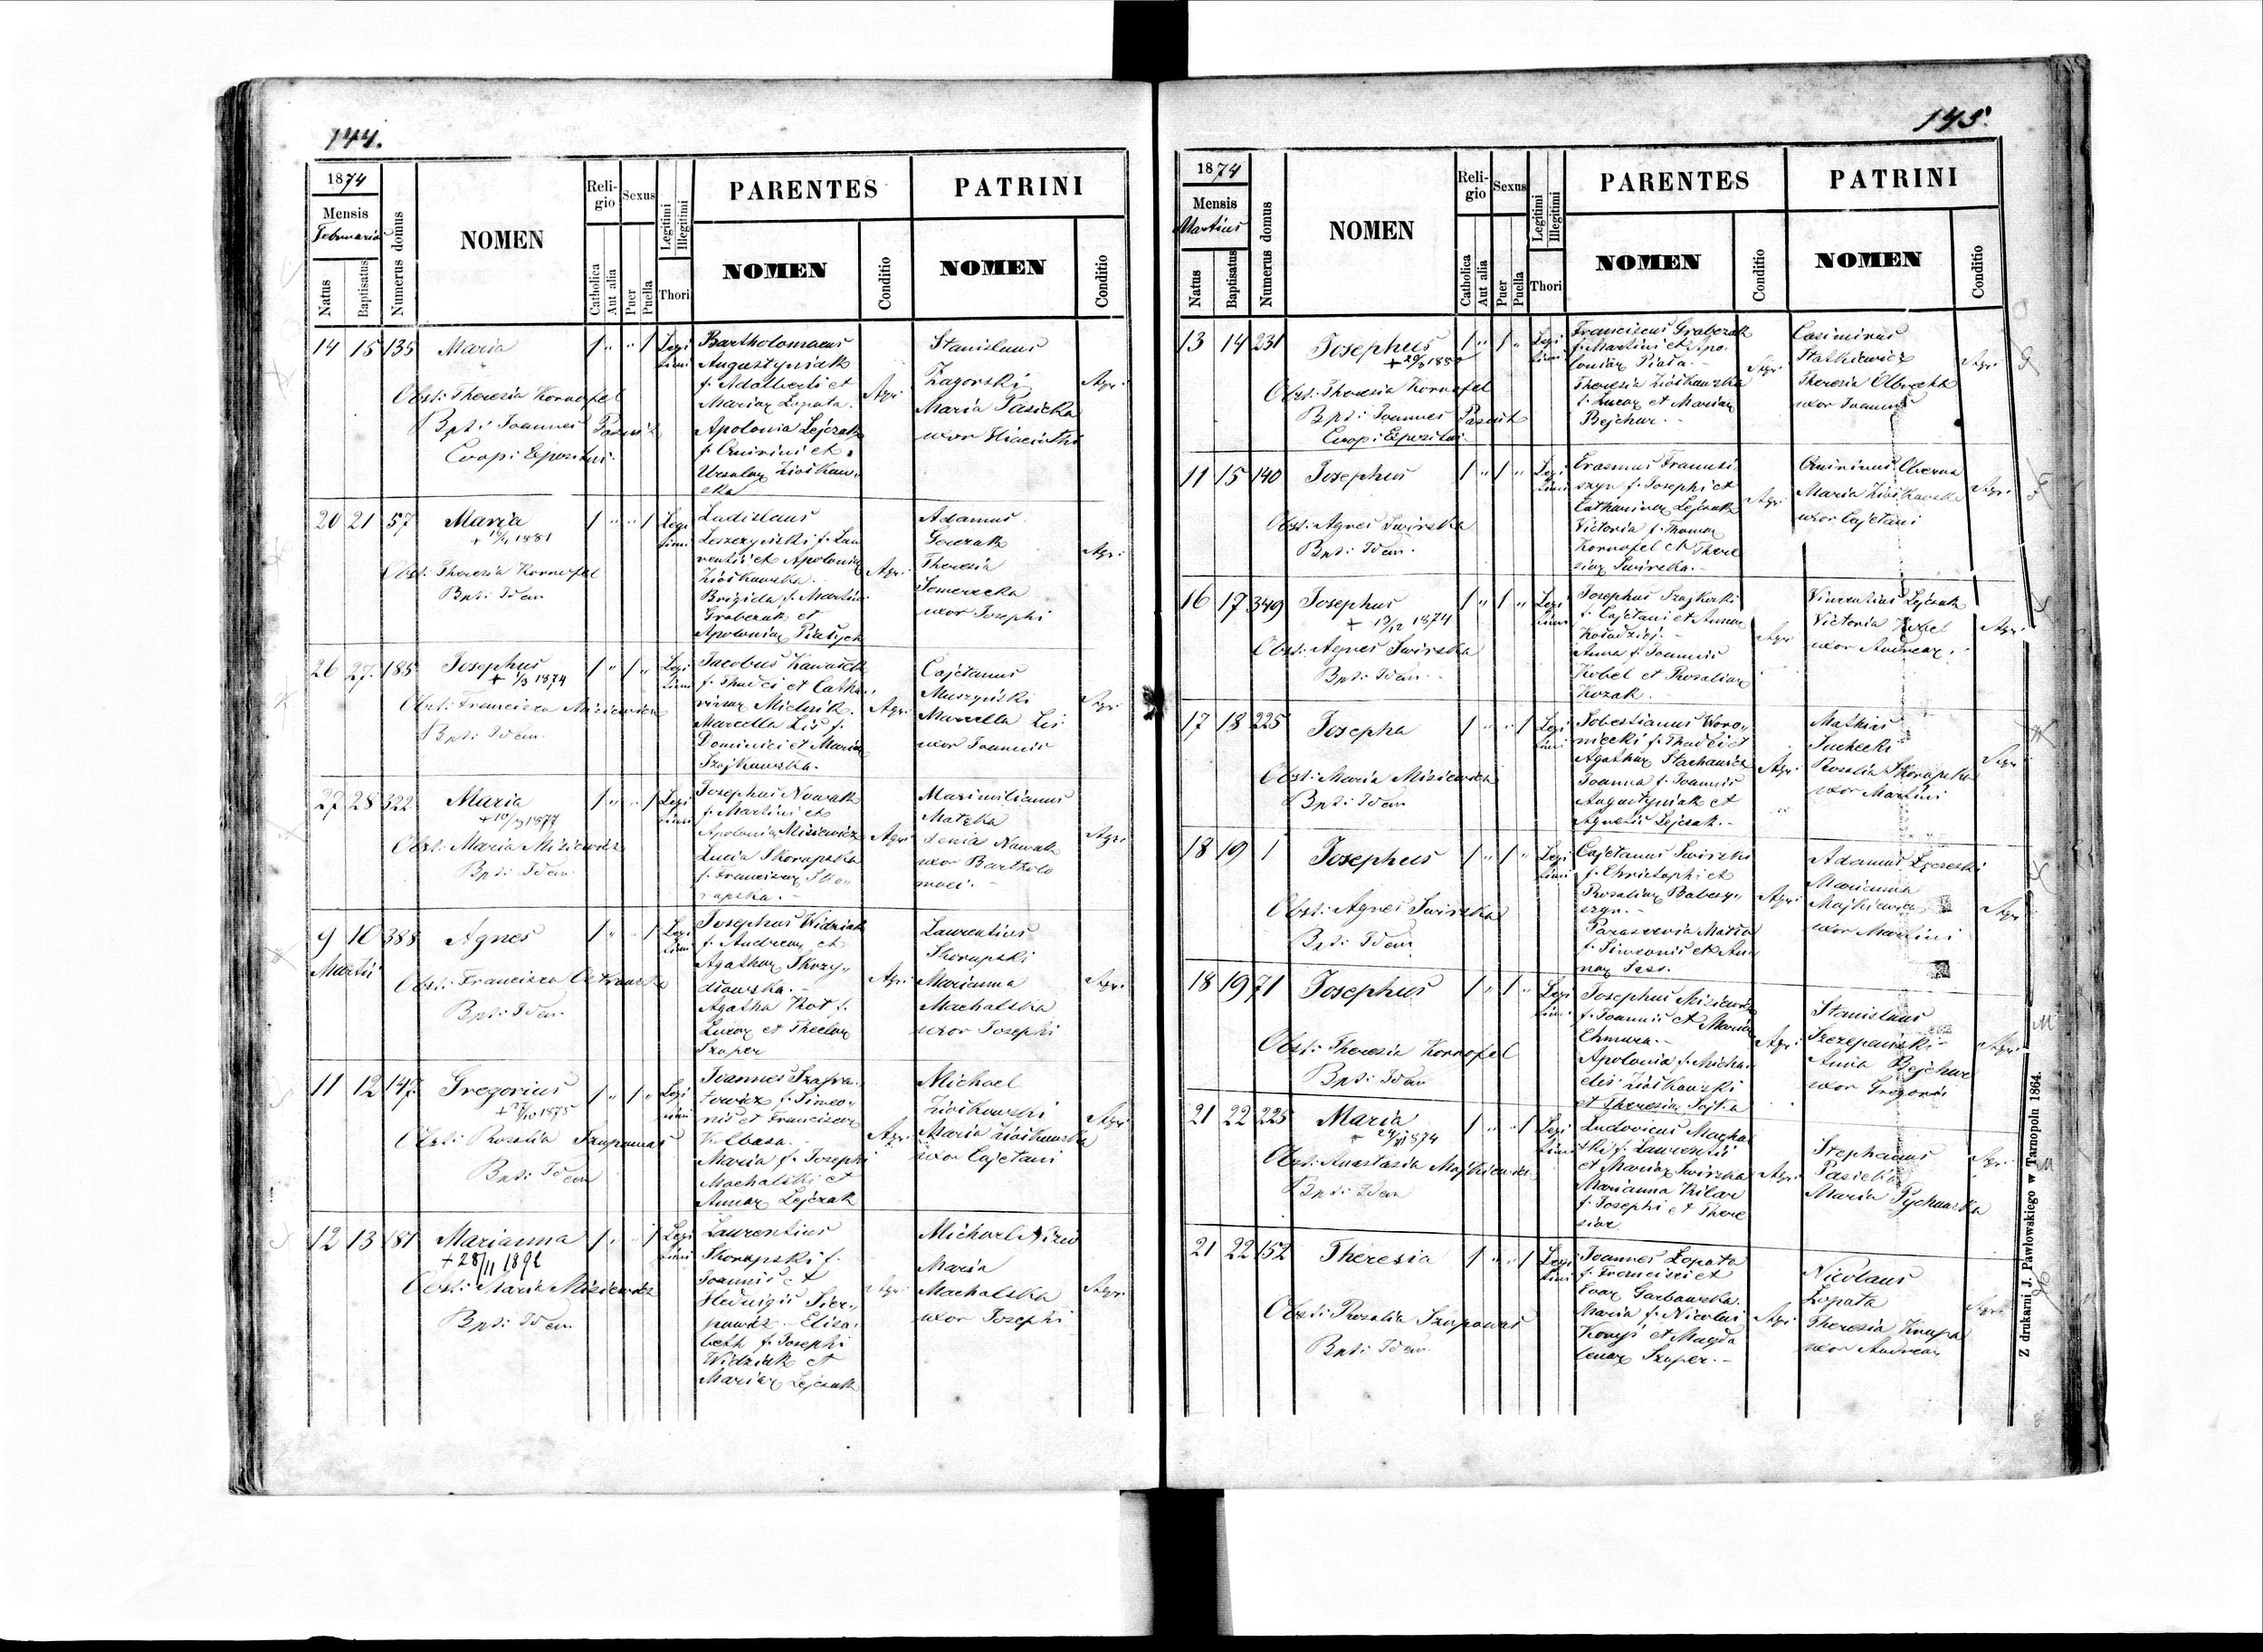 144.
1874
Mensis
Februarii
Natus
Baptisatus
Numerus domus
NOMEN
Reli-
gio
Catholica
Aut alia
Sexus
Puer
Puella
Legitimi
Illegitimi
Thori
PARENTES
NOMEN
Conditio
PATRINI
NOMEN
Conditio
14 15 135 Maria 1 " " 1 Legi
timi
Obst: Theresia Kornafel
Bpt: Joannes Pasnik
Coop: Expositus.
Bartholomaeus
Augustyniak
f. Adalberti et
Mariae Łopata.
Apolonia Lejczak
f. Quirini et
Ursulae Ziółkow
ska
Agri
Stanislaus
Zagorski
Maria Pasicka
uxor Hiacinthi
Agr:
20 21 57 Maria 1 " " 1 Legi
timi
1881
Obst: Theresia Kornafel
Bpt: Idem
Ladislaus
Leszczynski f. Lau
rentii et Apoloniae
Ziółkowska.
Brigida f. Martini
Graberak et
Apoloniae
Agr:
Adamus
Theresia
uxor Josephi
Agr:
26 27. 185 Josephus 1 " 1 " Legi
timi
+ 1/3 1874
Obst: Francisca Misiewicz
Bpt: Idem
Jacobus
f. Thadei et Catha
rinae Michnik.
Marcella Lis f.
Dominici et Mariae
Szajkowska.
Agr:
Cajetanus
Muszyński
Marcella Lis
uxor Joannis
Agr:
27 28 322 Maria 1 " " 1 Legi
timi
1877
Obst: Maria Misiewicz
Bpt: Idem
Josephus Nowak
f. Martini et
Apoloniae Misiewicz
Lucia Skorupska
f. Franciscae Sko
rupska.
Agr:
Maximilianus
Matzka
Nowak
uxor Bartholo
maei.
Agr:
9 10 388 Agnes 1 " " 1 Legi
timi
Martii
Obst: Francisca Ostrowska
Bpt: Idem.
Josephus Widziak
f. Andreae et
Agathae Skrzy
dłowska.
Agatha Kot f.
Lucae et Theclae
Szaper
Agr:
Laurentius
Skorupski
Marianna
Machalska
uxor Josephi
Agr:
11 12 147 Gregorius 1 " 1 " Legi
timi
1875
Obst: Rosalia Szupanas
Bpt: Idem
Joannes Szafra
towicz f. Simeo
nis et Franciscae
Kolbasa.
Maria f. Josephi
Machalski et
Annae Lejczak
Agr:
Michael
Ziółkowski
Maria Ziółkowska
uxor Cajetani
Agr:
12 13 187 Marianna 1 " " 1 Legi
timi
+ 28/11 1892
Obst: Maria Misiewicz
Bpt: Idem
Laurentius
Skorupski f.
Joannis et
Hedwigis Sier
pawicz. Elisa
beth f. Josephi
Widziak et
Mariae Lejczak
Agr:
Michael
Maria
Machalska
uxor Josephi
Agr:
145.
1874
Mensis
Martius
Natus
Baptisatus
Numerus domus
NOMEN
Reli-
gio
Catholica
Aut alia
Sexus
Puer
Puella
Legitimi
Illegitimi
Thori
PARENTES
NOMEN
Conditio
PATRINI
NOMEN
Conditio
13 14 231 Josephus 1 " 1 " Legi
timi
Obst: Theresia Kornafel
Bpt: Joannes Pasnik
Coop: Expositus.
Franciscus Graberak
f. Martini et Apo
loniae Piata.
Theresia Ziółkowska
f. Lucae et Mariae
Bejchur.
Agr:
Casimirus
Statkiewicz
Theresia Olbrecht
uxor Joannis
Agr:
11 15 140 Josephus 1 " 1 " Legi
timi
Obst: Agnes Swirska
Bpt: Idem.
Erasmus Franusi
szyn f. Josephi et
Catharinae Lejczak
Victoria f. Thomae
Kornafel et There
siae Swirska.
Agr:
Quirinus Oberna
Maria Ziółkowska
uxor Cajetani
Agr:
16 17 349 Josephus 1 " 1 " Legi
timi
+ 19/12 1874
Obst: Agnes Swirska
Bpt: Idem
Josephus Szajkoski
f. Cajetani et Annae
Kołodziej.
Anna f. Joannis
Kobel et Rosaliae
Kozak.
Agr:
Vincentius Lejczak
Victoria Kobel
uxor Andreae.
Agr:
17 18 225 Josepha 1 " " 1 Legi
timi
Obst: Maria Misiewicz
Bpt: Idem
Sebestianus Woro
niecki f. Thadei et
Agathae Stachowicz
Joanna f. Joannis
Augustyniak et
Agnetis Lejczak.
Agr:
Mathias
Suchecki
Rosalia Skorupska
uxor Martini
Agr:
18 19 1 Josephus 1 " 1 " Legi
timi
Obst: Agnes Swirska
Bpt: Idem
Cajetanus Swirski
f. Christophi et
Rosaliae Babczy
szyn.
Parascevia
f. Simeonis et An
nae
Agr:
Adamus
Marianna
Majkiewicz
uxor Martini
Agr:
18 19 71 Josephus 1 " 1 " Legi
timi
Obst: Theresia Kornafel
Bpt: Idem
Josephus Misiewicz
f. Joannis et Mariae
Chmura.
Apolonia f. Micha
elis Ziółkowski
et Theresiae Sojka
Agr:
Stanislaus
Szczepański
Anna Bejchur
uxor Gregorii
Agr:
21 22 225 Maria 1 " " 1 Legi
timi
1874
Obst: Anastasia Majkiewicz
Bpt: Idem
Ludovicus Macha
lski f. Laurentii
et Mariae Swirska
Marianna Kilar
f. Josephi et There
siae
Agr:
Stephanus
Pasicki
Maria Pychowska
Agr:
21 22 152 Theresia 1 " " 1 Legi
timi
Obst: Rosalia Szupanas
Bpt: Idem
Joannes Łopata
f. Francisci et
Evae Garbowska.
Maria f. Nicolai
et Magda
lenae Szaper.
Agr:
Nicolaus
Łopata
Theresia Krupa
uxor Andreae
Agr:
Z drukarni J. Pawłowskiego w Tarnopolu 1864.